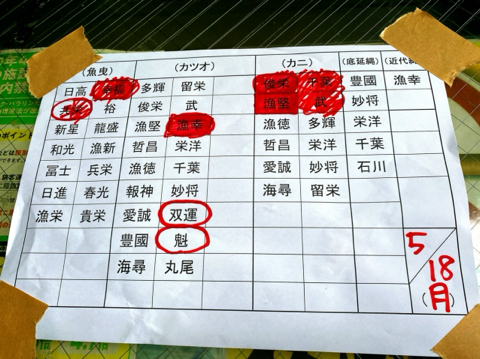 (魚曳) (カツオ) (カニ) (底延縄) (近代縄
日高 多輝 留栄 俊栄 千葉 豊國 漁幸
裕 俊栄 武 漁堅 武 妙将
新星 龍盛 漁堅 漁幸 漁徳 多輝 栄洋
和光 漁新 哲昌 栄洋 哲昌 栄洋 千葉
冨士 兵栄 漁徳 千葉 愛誠 妙将 石川
日進 春光 報神 妙将 海尋 留栄
漁栄 貴栄 愛誠 双運
豊國 魁
海尋 丸尾
5/18
(月)